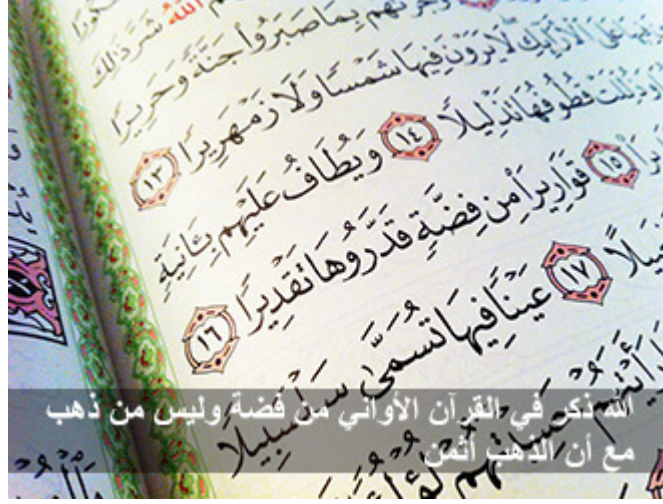 اللَّهُ شَرَّ ذَٰلِكَ
بِمَا صَبَرُوا جَنَّةً وَحَرِيرًا
عَلَى الْأَرَآئِكِ لَا يَرَوْنَ فِيهَا شَمْسًا وَلَا زَمْهَرِيرًا ١٣
وَذُلِّلَتْ قُطُوفُهَا تَذْلِيلًا ١٤ وَيُطَافُ عَلَيْهِم بِـَٔانِيَةٍ
١٥ قَوَارِيرَا۟ مِن فِضَّةٍ قَدَّرُوهَا تَقْدِيرًا ١٦
١٧ عَيْنًا فِيهَا تُسَمَّىٰ سَلْسَبِيلًا
الله ذكر في القرآن الأواني من فضة وليس من ذهب
مع أن الذهب أثمن